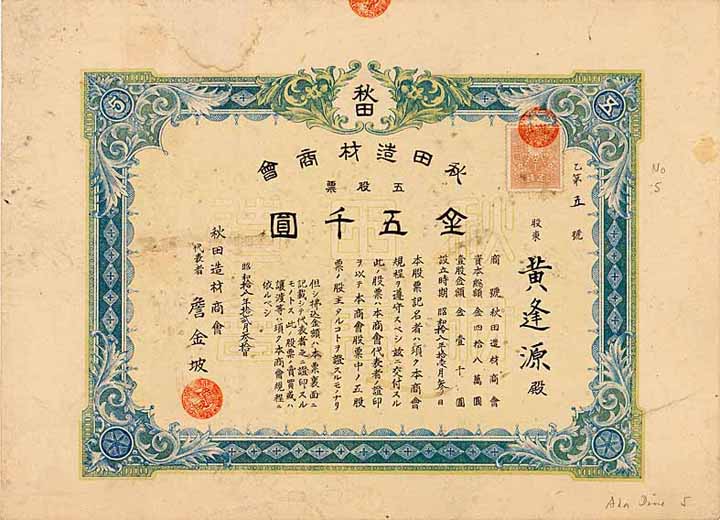 秋田
秋田造材商會
五股票
金五千圓
乙第五號
No 5
股東 黃逢源殿
商號 秋田造材商會
資本總額 金四拾八萬圓
壹股金額 金壹千圓
設立時期 昭和拾八年拾壹月參日
本股票記名者ハ須ク本商會
規程ヲ遵守スベシ茲ニ交付スル
此ノ股票ハ本商會代表者ノ證印
ヲ以テ本商會股票中ノ五股
票ノ股主タルコトヲ證スルモノナリ
但シ拂込金額ハ本票裏面ニ
記載シテ代表者之ニ證印スル
モノトス此ノ股票ノ賣買或ハ
讓渡等ハ須ク本商會規程ニ
依ルベシ
昭和拾八年拾貳月參拾
秋田造材商會
代表者 詹金坡
5